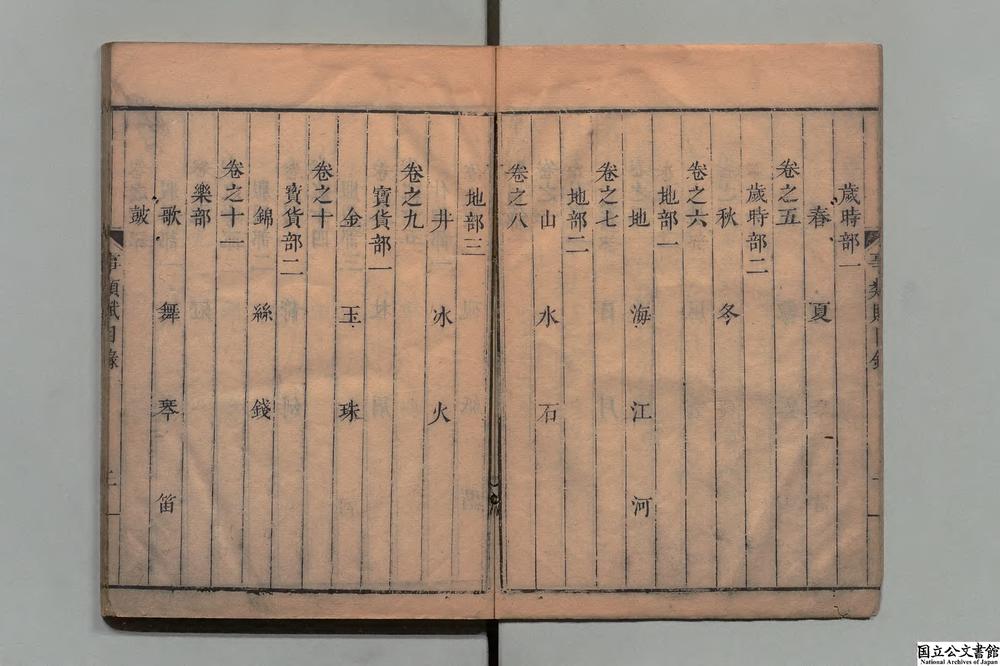 歲時部一
春 夏
卷之五
歲時部二
秋 冬
卷之六
地部一
地 海 江 河
卷之七
地部二
山 水 石
卷之八
地部三
井 冰 火
卷之九
寶貨部一
金 玉 珠
卷之十
寶貨部二
錦 絲 錢
卷之十一
樂部
歌 舞 琴 笛
鼓
事類賦目錄
二
国立公文書館
National Archives of Japan